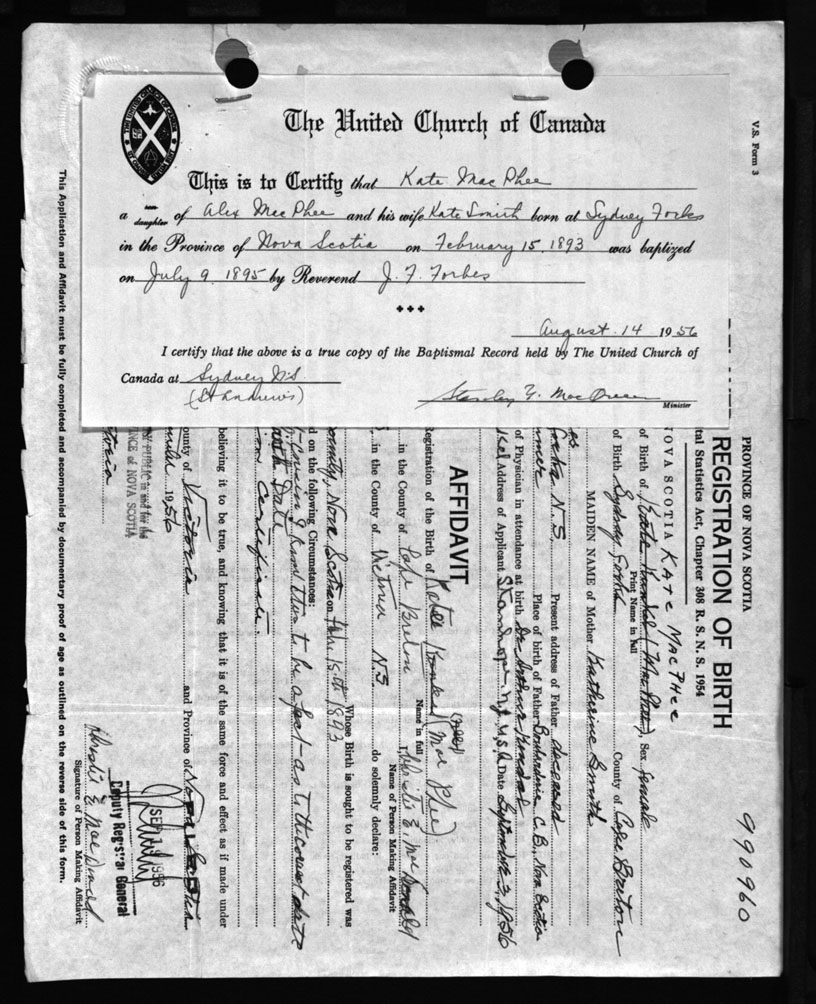 The United Church of Canada
This is to Certify that Kate MacPhee
a son daughter of Alex MacPhee and his wife Kate Smith born at Sydney Forks
in the Province of Nova Scotia on February 15, 1893 was baptized
on July 9 1895 by Reverend J. F. Forbes
August 14 1956
I certify that the above is a true copy of the Baptismal Record held by The United Church of
Canada at Sydney N.S
(St Andrew's)
Minister
V.S. Form 3
990960
PROVINCE OF NOVA SCOTIA
REGISTRATION OF BIRTH
tal Statistics Act, Chapter 308 R. S. N. S. 1954
NOVA SCOTIA KATE MACPHEE
of Birth of Sex female
Print Name in full
of Birth Sydney Forks County of Cape Breton
MAIDEN NAME of Mother Katherine Smith
Present address of Father deceased
Forks N.S. Place of birth of Father Boularderie C.B., Nova Scotia
of Physician in attendance at birth Dr Arthur Kendal
Address of Applicant Stanhope N.J. U.S.A. Date September 3, 1956
AFFIDAVIT
Registration of the Birth of Katie (nee) Mac Phee
Name in full
in the County of Cape Breton I, Christie E. Mac Donald
Name of Person Making Affidavit
, in the County of Victoria N.S. do solemnly declare:
Whose Birth is sought to be registered was
ounty, Nova Scotia on Feb. 15th 1893
d on the following Circumstances:
cousin & know them to be a fact as to the correct date
Date
Certificate.
believing it to be true, and knowing that it is of the same force and effect as if made under
ounty of Victoria and Province of Nova Scotia
1956
NCE of NOVA SCOTIA
toria
SEP 1956
Deputy Registrar General
Christie E Mac Donald
Signature of Person Making Affidavit
This Application and Affidavit must be fully completed and accompanied by documentary proof of age as outlined on the reverse side of this form.